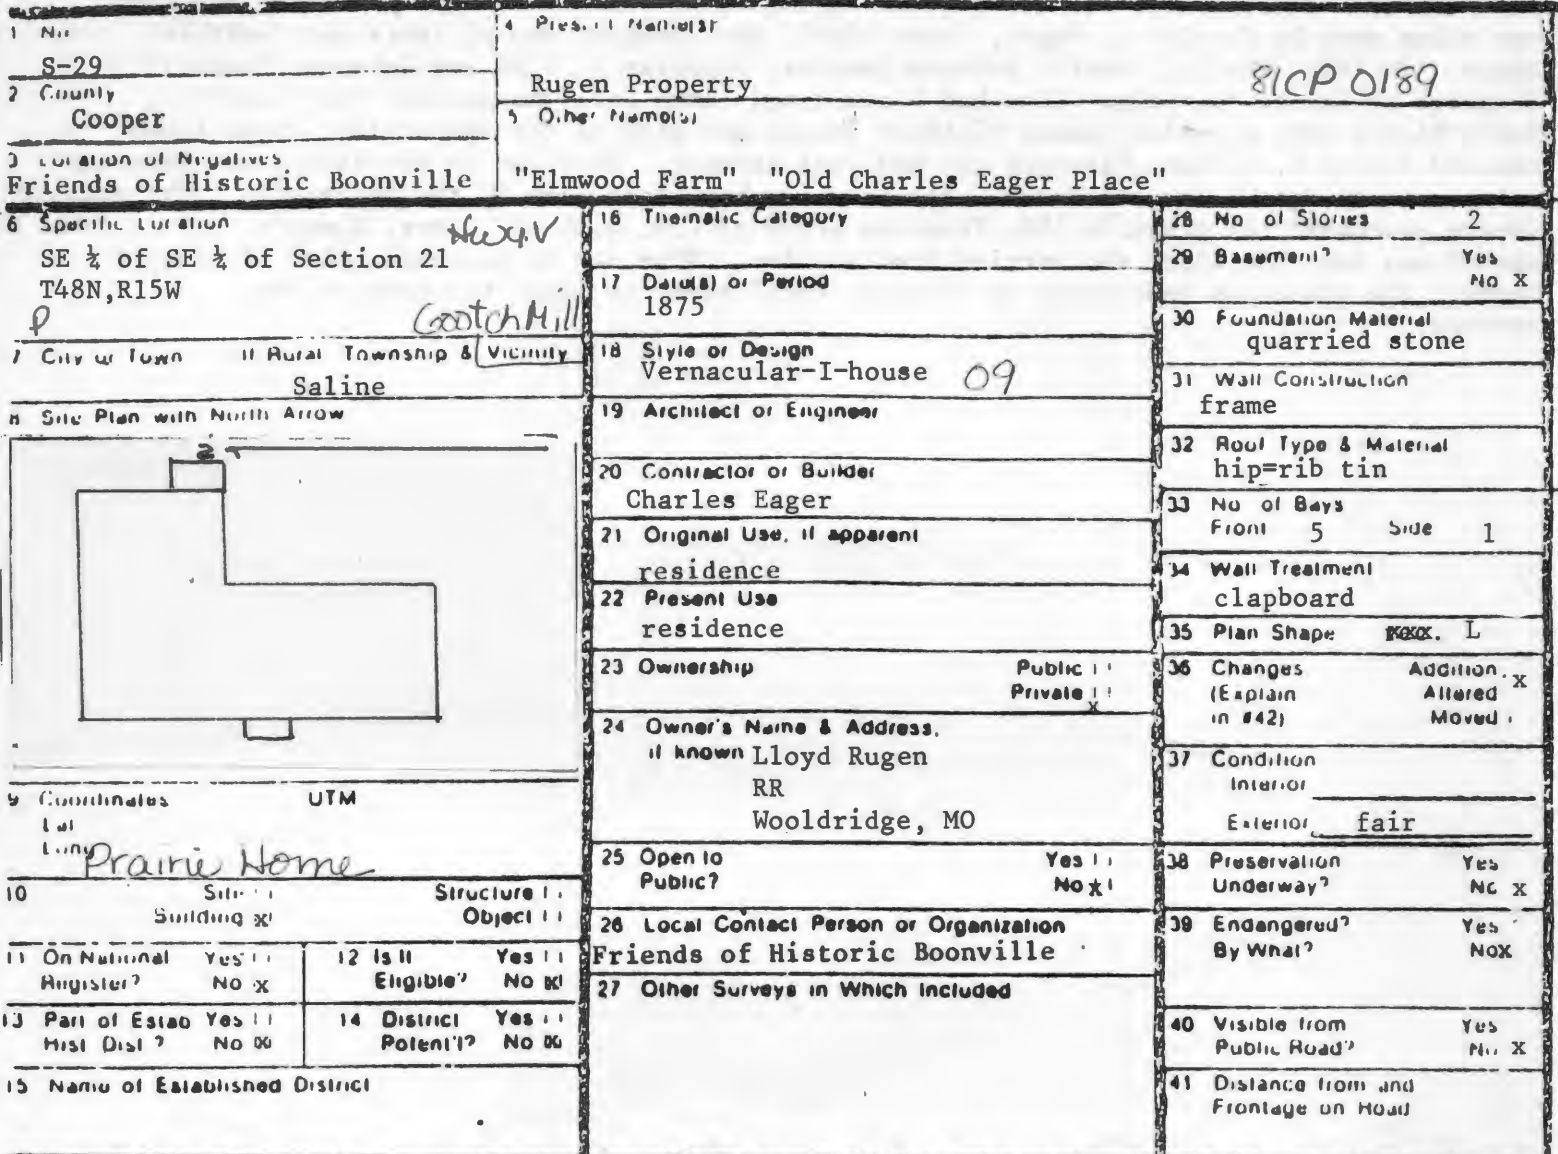 1 No
S-29
2 County
Cooper
3 Location of Negatives
Friends of Historic Boonville
4 Present Name(s)
Rugen Property
81CP0189
5 Other Name(s)
"Elmwood Farm" "Old Charles Eager Place"
6 Specific Location
Hwy. V
SE ¼ of SE ¼ of Section 21
T48N,R15W
P
Gootch Mill
7 City or Town If Rural Township & Vicinity
Saline
8 Site Plan with North Arrow
9 Coordinates UTM
Lat
Long
Prairie Home
10 Site Structure
Building x Object
11 On National Yes
Register? No x
12 Is It Yes
Eligible? No x
13 Part of Estab Yes
Hist Dist? No x
14 District Yes
Potent'l? No x
15 Name of Established District
16 Thematic Category
17 Date(s) or Period
1875
18 Style or Design
Vernacular-I-house 09
19 Architect or Engineer
20 Contractor or Builder
Charles Eager
21 Original Use, if apparent
residence
22 Present Use
residence
23 Ownership Public
Private x
24 Owner's Name & Address,
if known Lloyd Rugen
RR
Wooldridge, MO
25 Open to Yes
Public? No x
26 Local Contact Person or Organization
Friends of Historic Boonville
27 Other Surveys in Which Included
28 No of Stories 2
29 Basement? Yes
No x
30 Foundation Material
quarried stone
31 Wall Construction
frame
32 Roof Type & Material
hip=rib tin
33 No of Bays
Front 5 Side 1
34 Wall Treatment
clapboard
35 Plan Shape L
36 Changes Addition x
(Explain Altered
in #42) Moved
37 Condition
Interior
Exterior fair
38 Preservation Yes
Underway? No x
39 Endangered? Yes
By What? No X
40 Visible from Yes
Public Road? No x
41 Distance from and
Frontage on Road